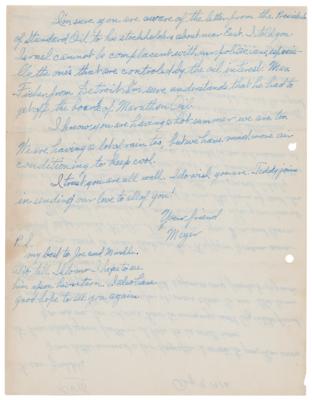 I'm sure you are aware of the letter from the President
of Standard Oil to his stockholders about near East. I told you
Israel cannot be complacent with our politicians, especially
the ones that are controled by the oil interest. Max
Fisher from Detroit I'm sure understands that he had to
get off the board of Marathon Oil.
I know you are having a hot summer we are too.
We are having a lot of rain too, but we have much more air
conditioning to keep cool.
I trust you are all well. I do wish you are. Teddy joins
in sending our love to all of you!
Your friend
Meyer
P.S.
my best to Joe and
tell I hope to see
him upon his return. I also have
good hope to see you again